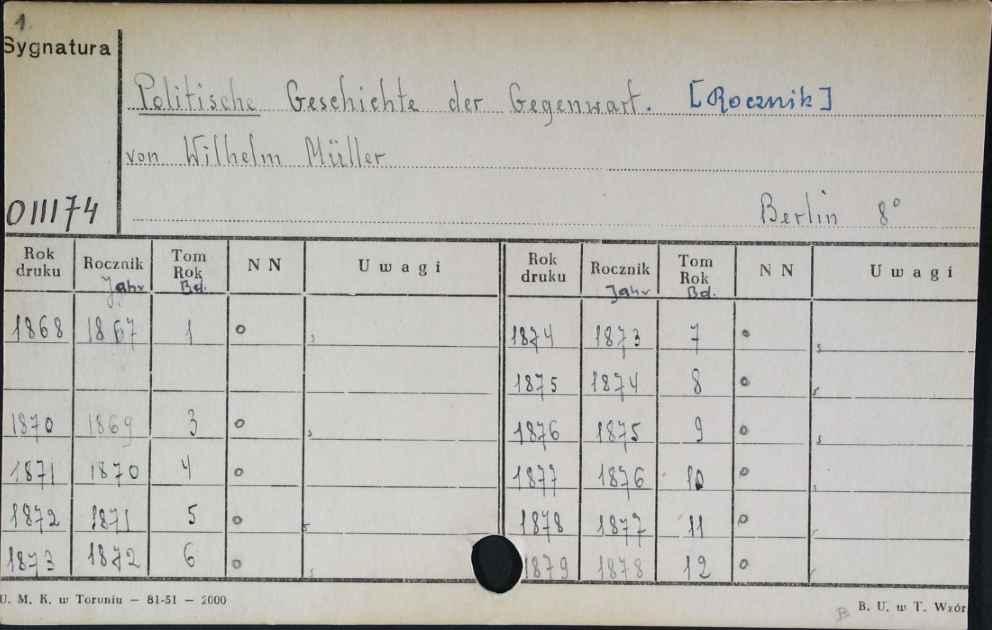 1.
Sygnatura
Politische Geschichte der Gegenwart. [Rocznik]
von Wilhelm Müller
011174
Berlin 8°
Rok druku Rocznik Jahr Tom Rok Bd. N N Uwagi Rok druku Rocznik Jahr Tom Rok Bd. N N Uwagi
1868 1867 1 o 1874 1873 7 o
1875 1874 8 o
1870 1869 3 o 1876 1875 9 o
1871 1870 4 o 1877 1876 10 o
1872 1871 5 o 1878 1877 11 o
1873 1872 6 o 1879 1878 12 o
U. M. K. w Toruniu — 81-51 — 2000
B. U. w T. Wzór